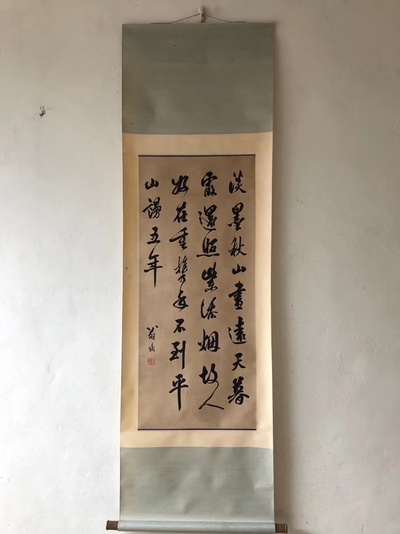 淡墨秋山畫遠天暮
霞還照紫添烟故人
好在重攜手不到平
山謾五年